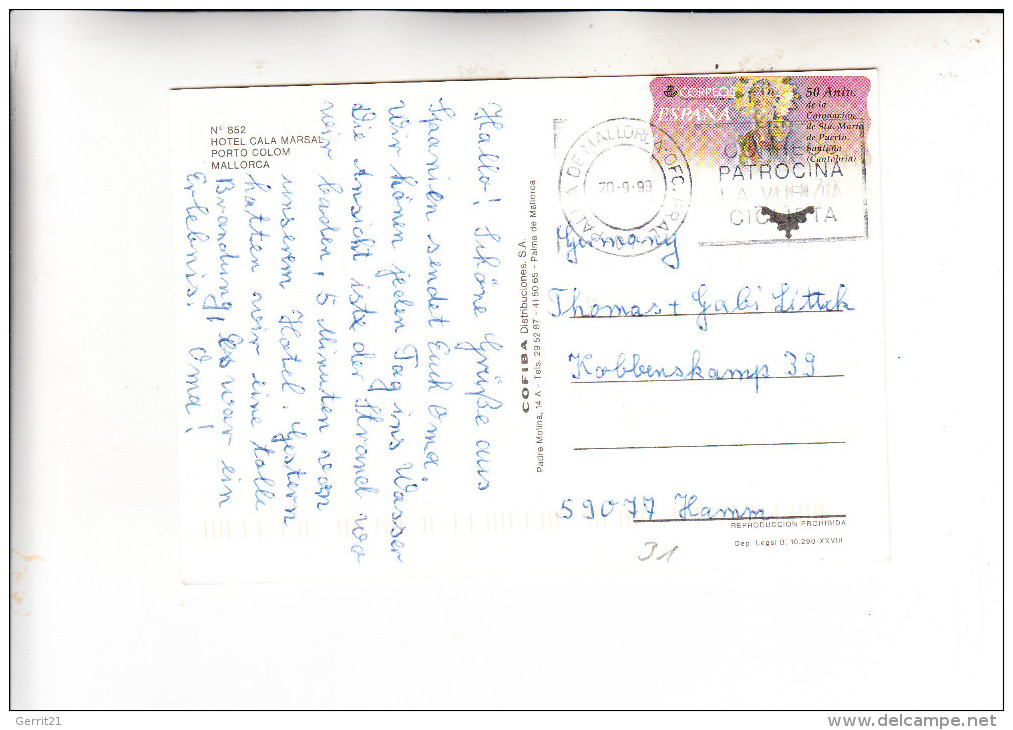 N° 852
HOTEL CALA MARSAL
PORTO COLOM
MALLORCA
Hallo! Schöne Grüße aus
Spanien sendet Euch Oma.
Wir können jeden Tag ins Wasser
Die Ansicht ist der Strand wo
wir baden, 5 Minuten von
unserem Hotel. Gestern
hatten wir eine tolle
Brandung, Es war ein
Erlebnis. Oma!
COFIBA Distribuciones, S.A.
Padre Molina, 14 A - Tels. 29 52 87 - 41 50 65 - Palma de Mallorca
CORREOS
ESPAÑA
50 Aniv.
de la
Coronación
de Sta. María
de Puerto.
Santoña
(Cantabria)
DE MALLORCA
20-9-99
PATROCINA
LA VUELTA
CICLISTA
Germany
Thomas + Gabi Littek
Kobbenskamp 39
59077 Hamm
REPRODUCCION PROHIBIDA
Dep. Legal B. 10.290-XXVIII
31
Gerrit21
www.delcampe.net